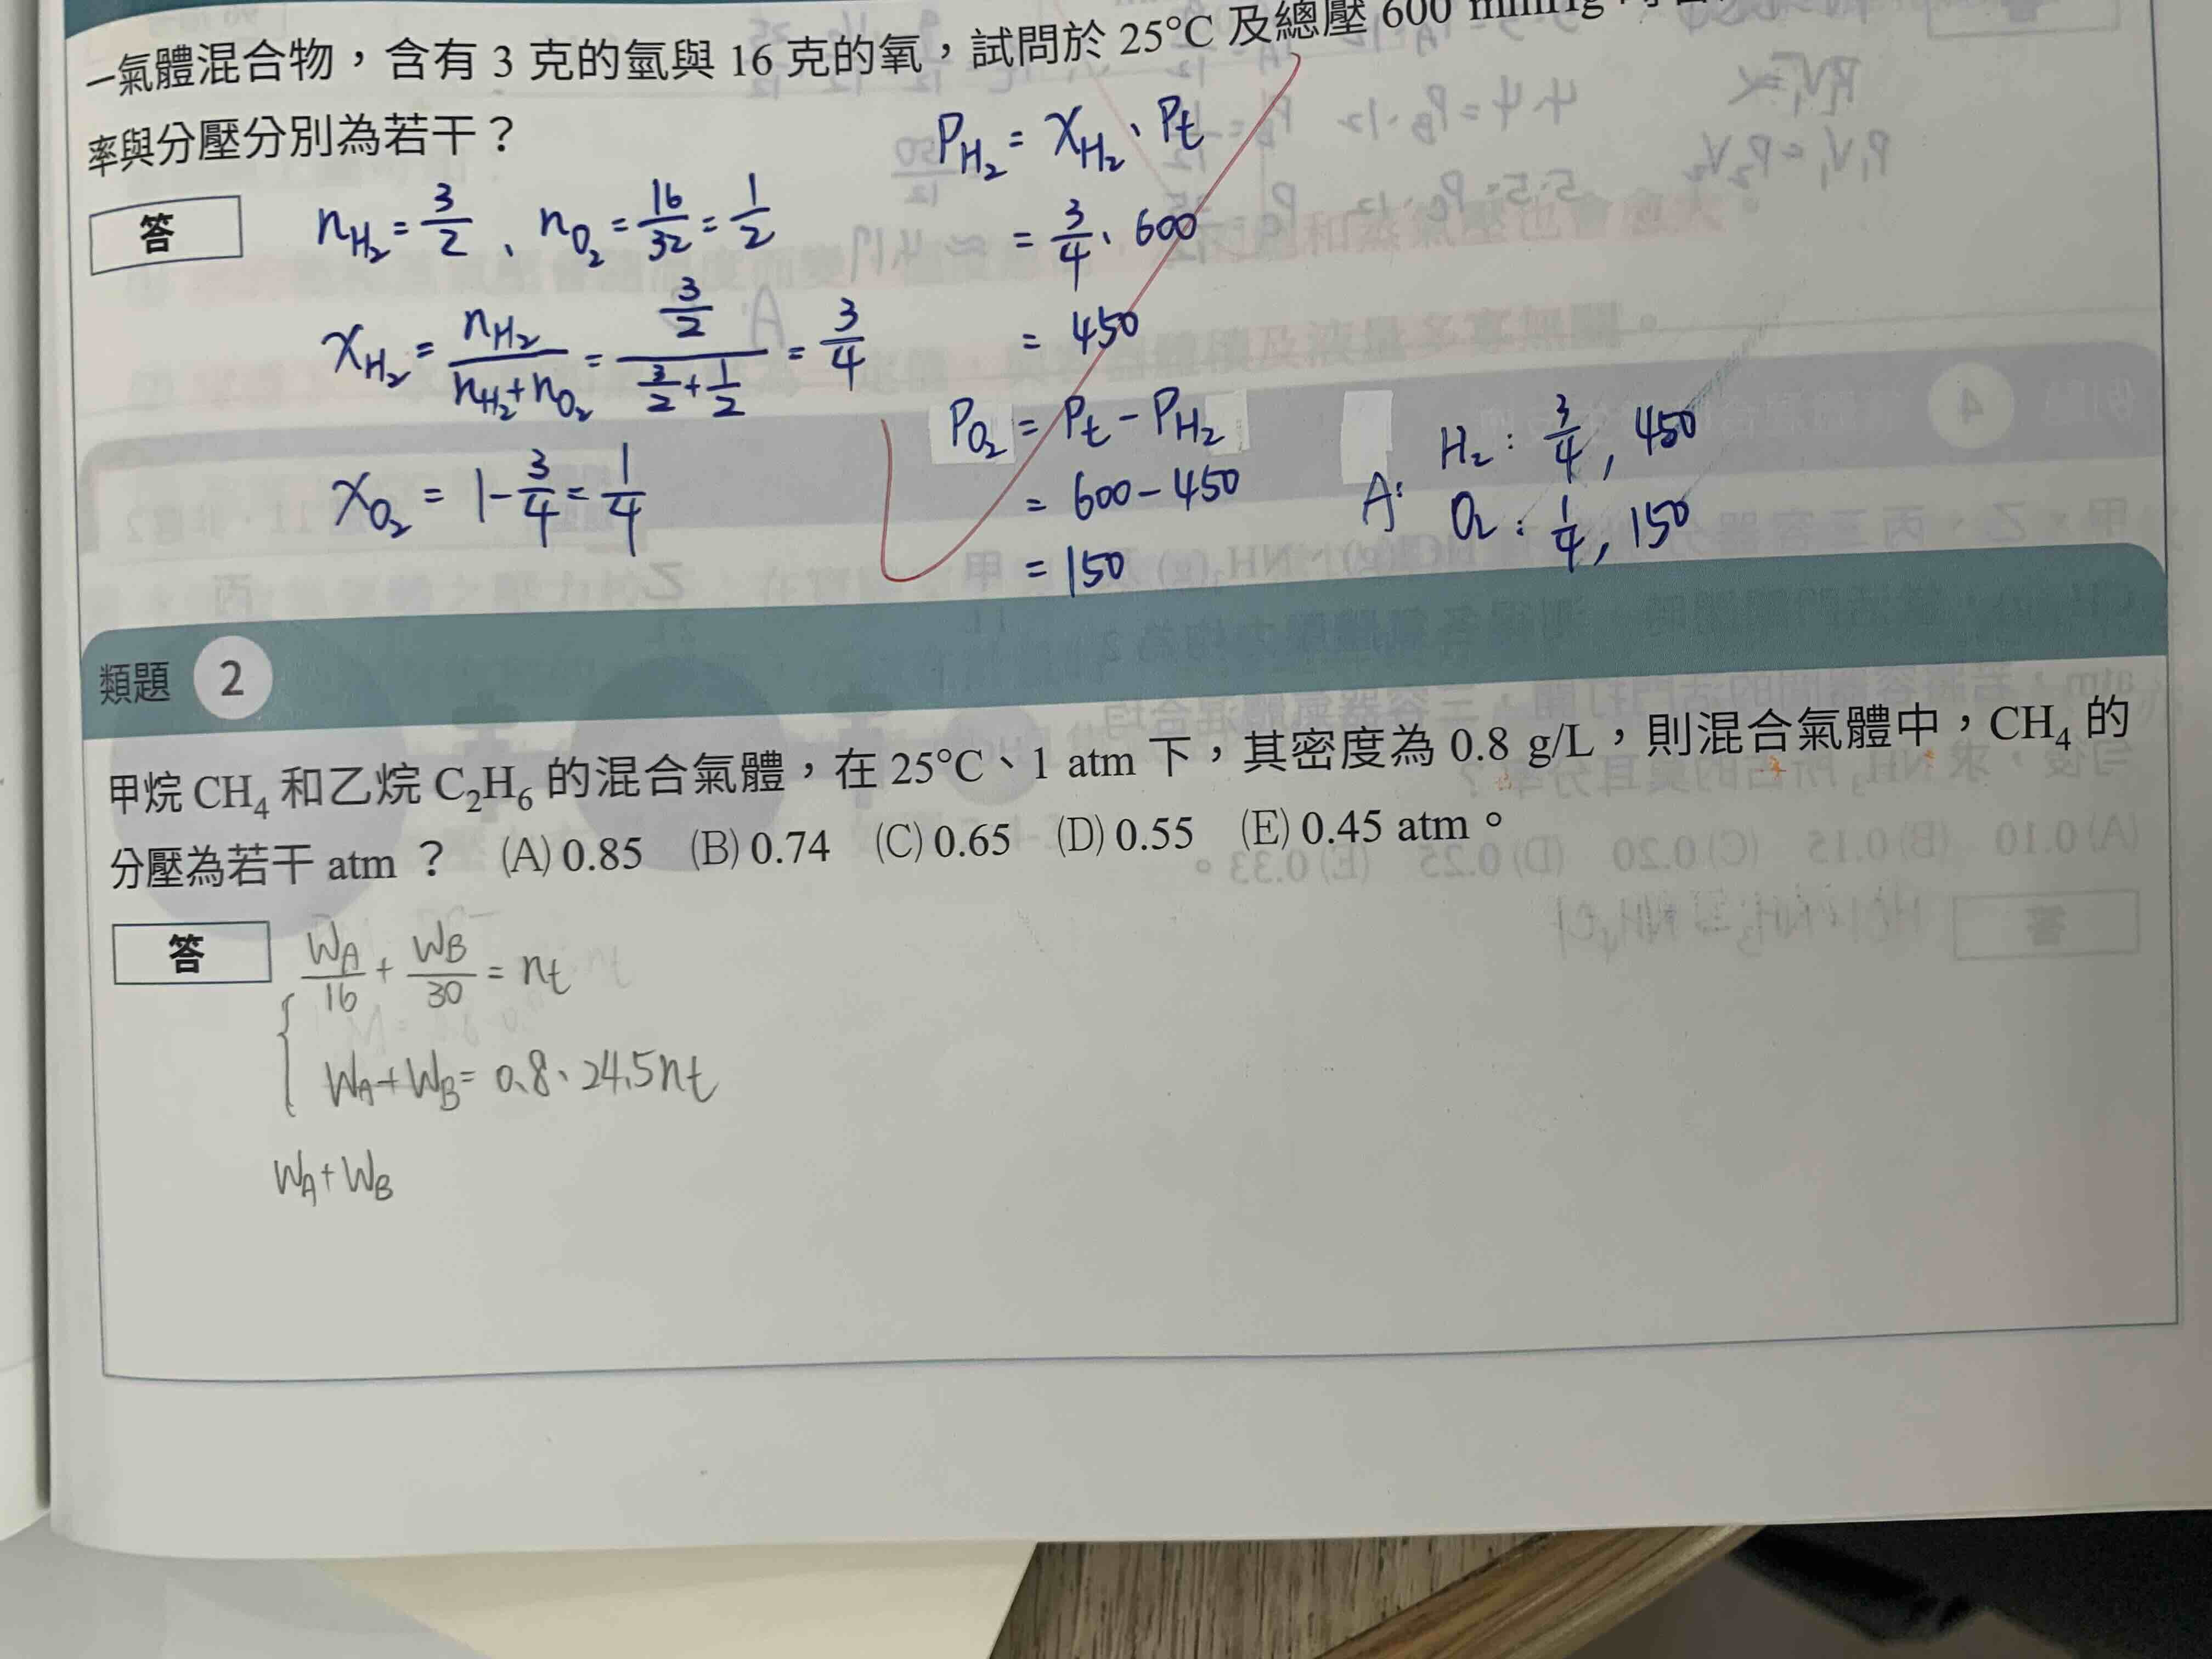 一氣體混合物，含有 3 克的氫與 16 克的氧，試問於 25°C 及總壓 600 mmHg
率與分壓分別為若干？
答
n_H₂ = 3/2 、 n_O₂ = 16/32 = 1/2
x_H₂ = n_H₂/(n_H₂+n_O₂) = (3/2)/(3/2+1/2) = 3/4
x_O₂ = 1 - 3/4 = 1/4
P_H₂ = x_H₂ · Pt
= 3/4 · 600
= 450
P_O₂ = Pt - P_H₂
= 600 - 450
= 150
A: H₂ : 3/4 , 450
O₂ : 1/4 , 150
類題 2
甲烷 CH₄ 和乙烷 C₂H₆ 的混合氣體，在 25°C、1 atm 下，其密度為 0.8 g/L，則混合氣體中，CH₄ 的
分壓為若干 atm ？ (A) 0.85 (B) 0.74 (C) 0.65 (D) 0.55 (E) 0.45 atm。
答
W_A/16 + W_B/30 = nt
W_A + W_B = 0.8 · 24.5 nt
W_A + W_B